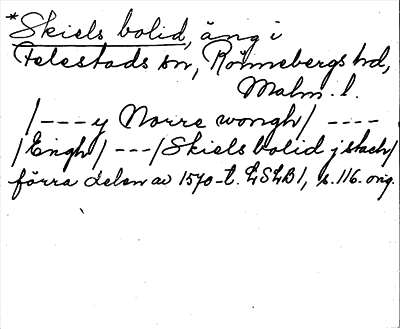 *Skiels bolid, äng i
Felestads sn, Rönnebergs hd,
Malm. l.
/---y Norre wongh/ ----
/Engh/ ---/Skiels bolid j stach/
förra delen av 1570-t. LSLB1, s. 116. orig.